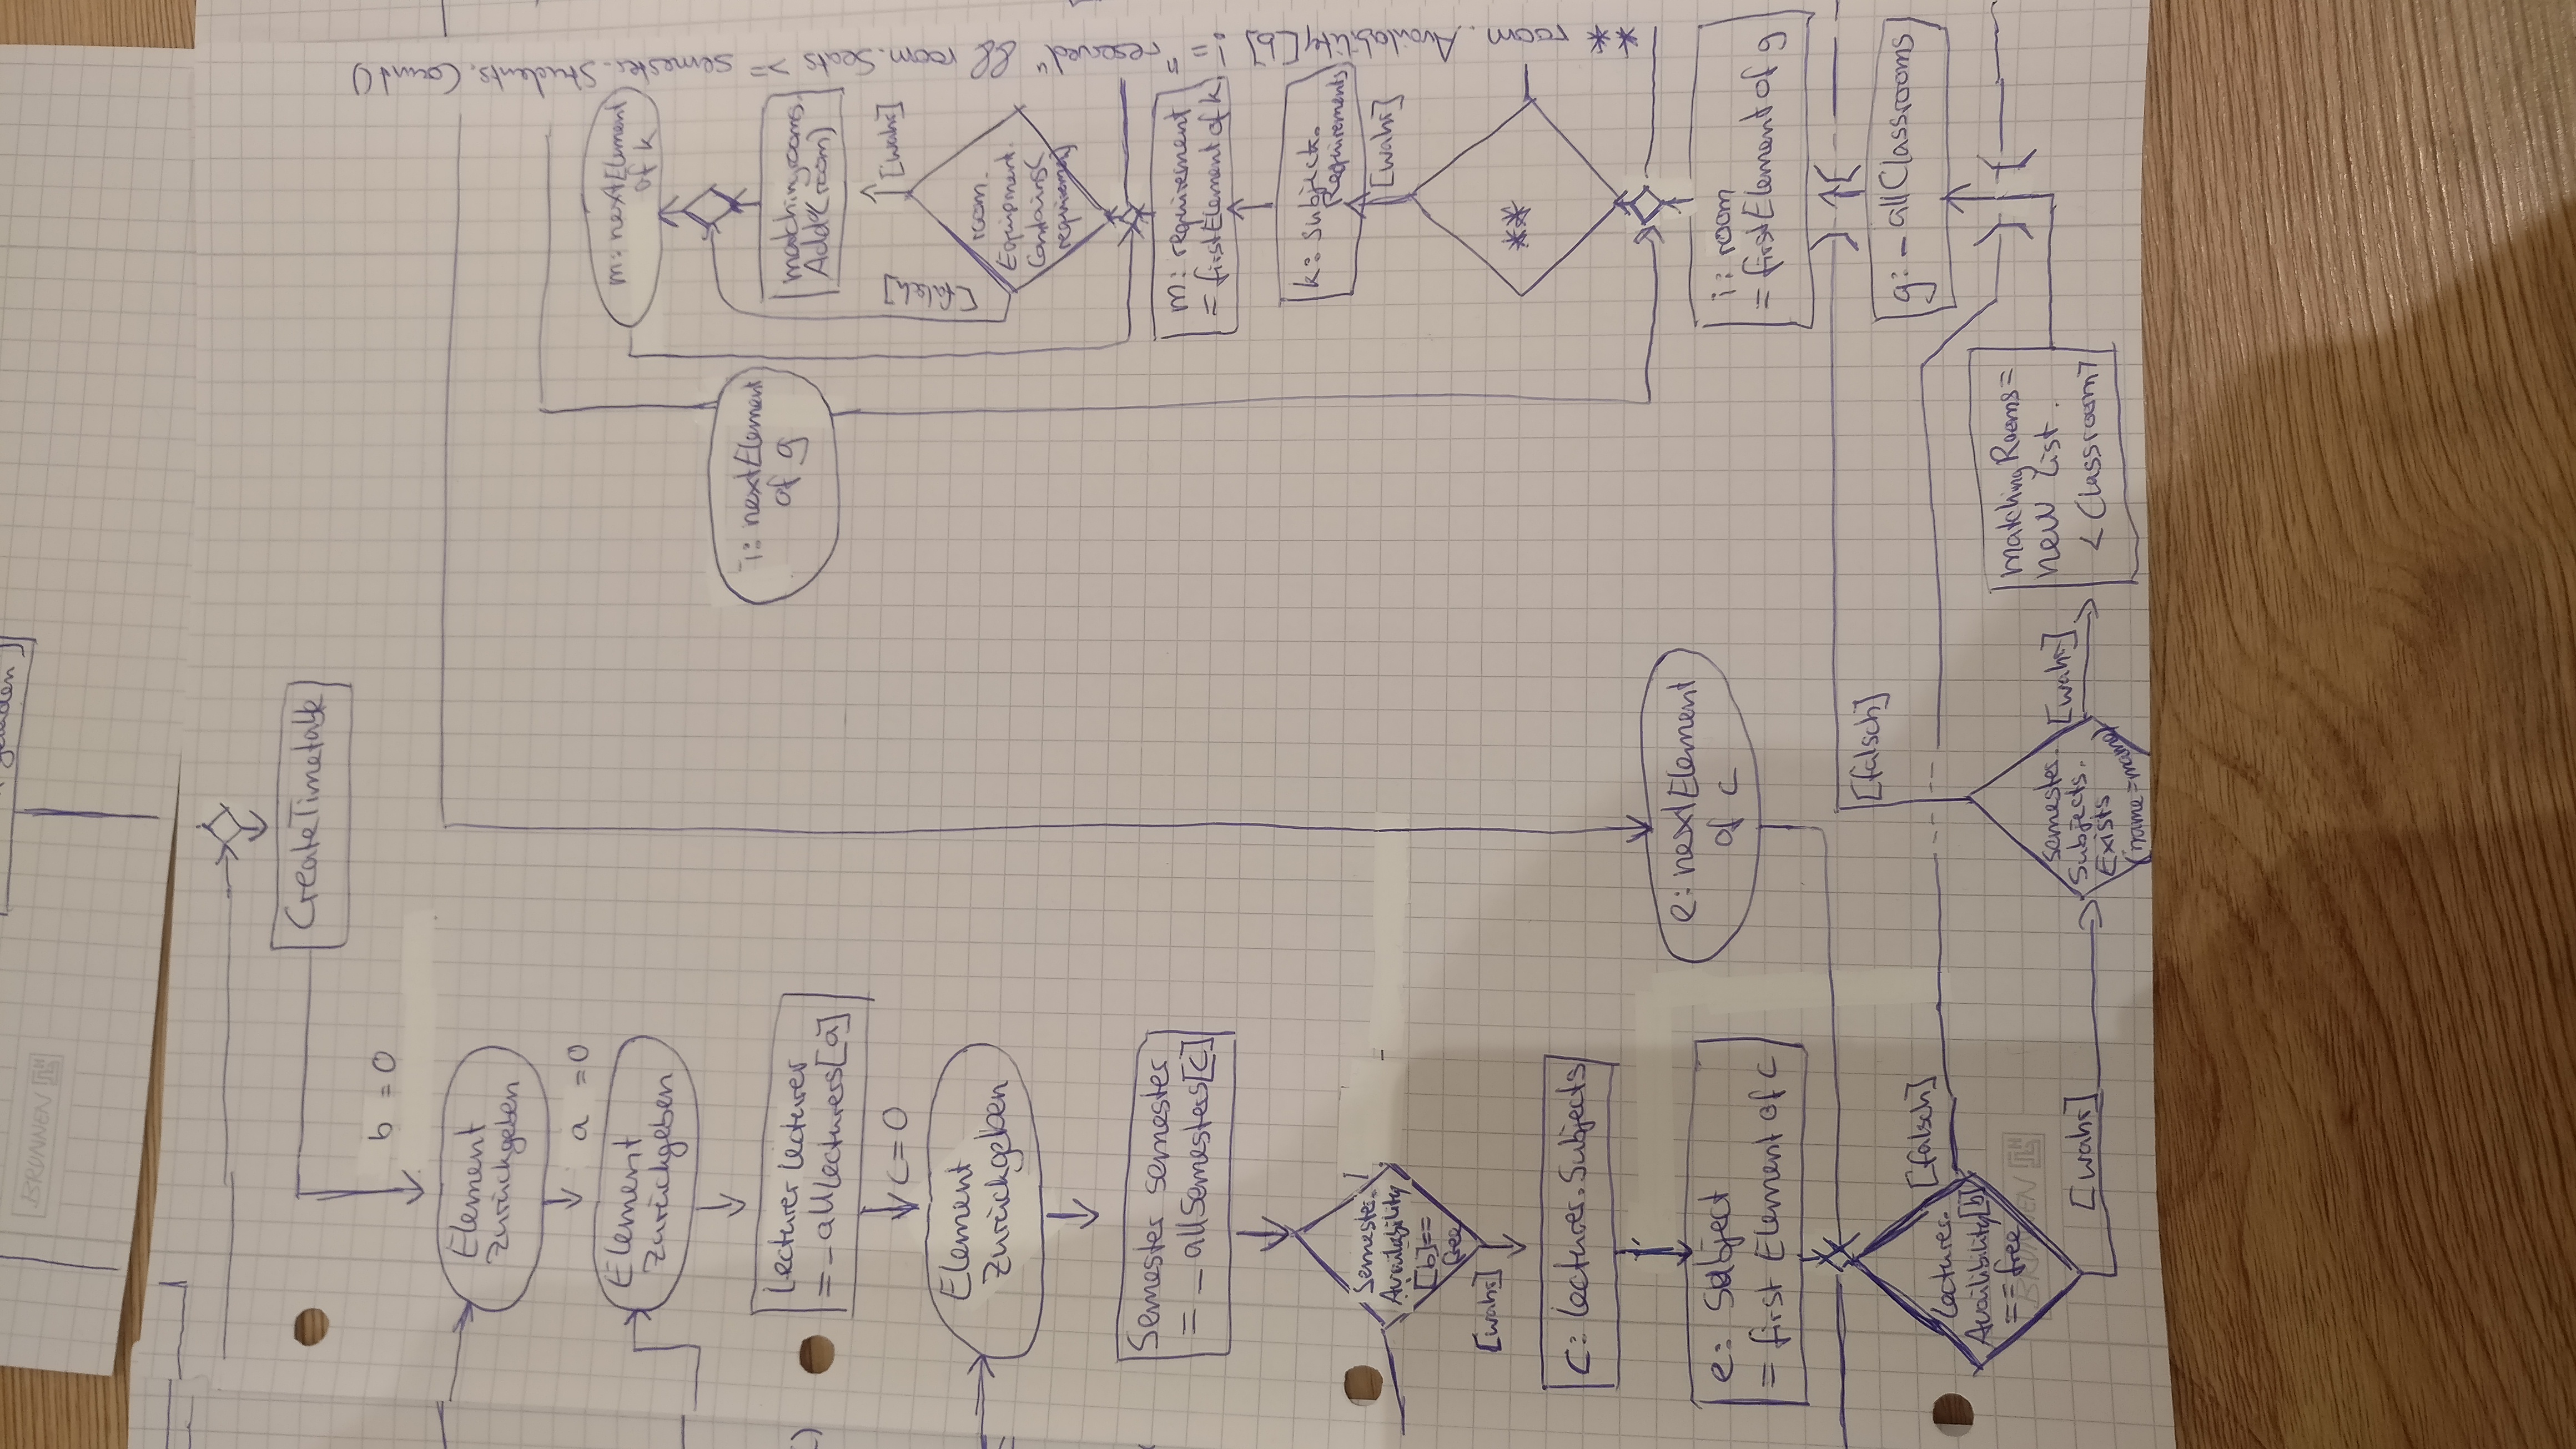 geladen]
BRUNNEN
CreateTimetable
b = 0
Element
Zurückgeben
a = 0
Element
Zurückgeben
Lecturer lecturer
= _allLecturers[a]
c = 0
Element
Zurückgeben
Semester semester
= _allSemesters[c]
Semester.
Availability
[b]==
free
[wahr]
c: lecturer.Subjects
e: Subject
= first Element of c
[falsch]
Lecturer.
Availibility[b]
== free
BRUNNEN
[wahr]
e: nextElement
of c
[falsch]
semester.
Subjects.
Exists
(name=name)
[wahr]
matchingRooms=
new List.
<Classroom>
g: _allClassrooms
i: room
= firstElement of g
**
[wahr]
k: subject.
Requirements
m: requirement
= firstElement of k
room.
Equipment.
Contains(
requirement)
[falsch]
[wahr]
matchingrooms.
Add(room)
m: nextElement
of k
i: nextElement
of g
** room.Availability[b] != "reserved" && room.Seats >= semester.Students.Count()